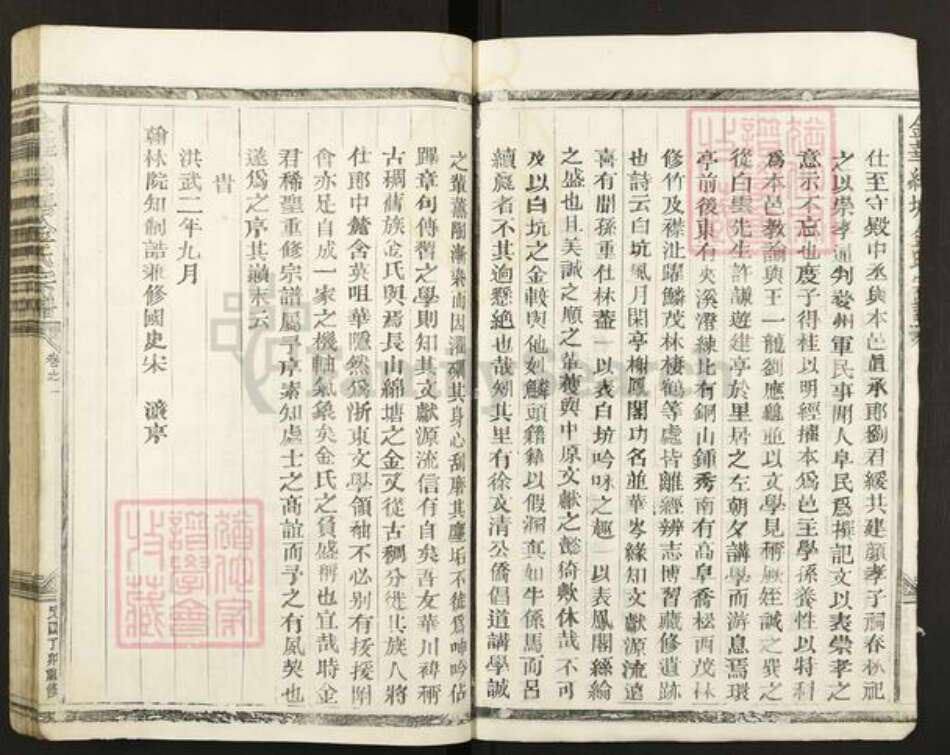 仕至守殿中丞與本邑眞承郎劉君緩共建顔孝子祠春秋祀
之以學孝通判婺州軍民事閒人阜民爲撰記文以表崇孝之
意示不忘也度子得桂以明經擢本爲邑主學孫養性以特科
爲本邑教諭與王一龍劉應龜並以文學見稱厥姪誠之巽之
從白雲先生許謙遊建亭於里居之左朝夕講學而游息焉環
亭前後東有夾溪澄練比有銅山鍾秀南有高阜喬松西茂林
修竹及襟沚躍鱗茂林棲鶴等處皆離經辨志博習藏修遺跡
也詩云白坑風月閑亭榭鳳閣功名並華岑緣知文獻源流遠
喜有聞孫重仕林葢一以表白坑吟咏之趣一以表鳳閣絲綸
之盛也且美誠之順之輩穫與中原文獻之懿猗歟休哉不可
及以白坑之金較與他如鱗頭籍錄以假溷眞如牛係馬而呂
續嬴者不其逈懸絶也哉矧其里有徐文清公僑倡道講學誠
之輩薰陶漸染而因灌磷其身心刮磨其塵垢不徒爲呻吟佔
蹕章句傳習之學則知其文獻源流信有自矣吾友華川褘稱
古稠舊族金氏與焉長山綿塘之金又從古稠分徙其族人將
仕郎中瞻含英咀華隱然爲浙東文學領袖不必別有援援附
會亦足自成一家之機軸氣象矣金氏之貟盛稱也宜哉時金
君稀聖重修宗譜屬予序素知處士之高誼而予之有夙契也
遂爲之序其巓末云
旹
洪武二年九月
翰林院知制誥兼修國史宋 濂序
卷之一
民國丁卯重修
FamilySearch